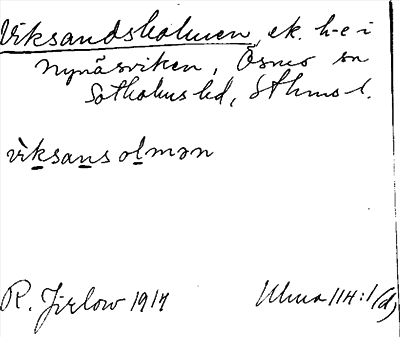 Viksandsholmen, ek. h-e i
Nynäsviken, Ösmo sn
Sotholms hd, Sthms l.
vìksans olmən
R. Jirlow 1917
Ulma 114:1 (d)